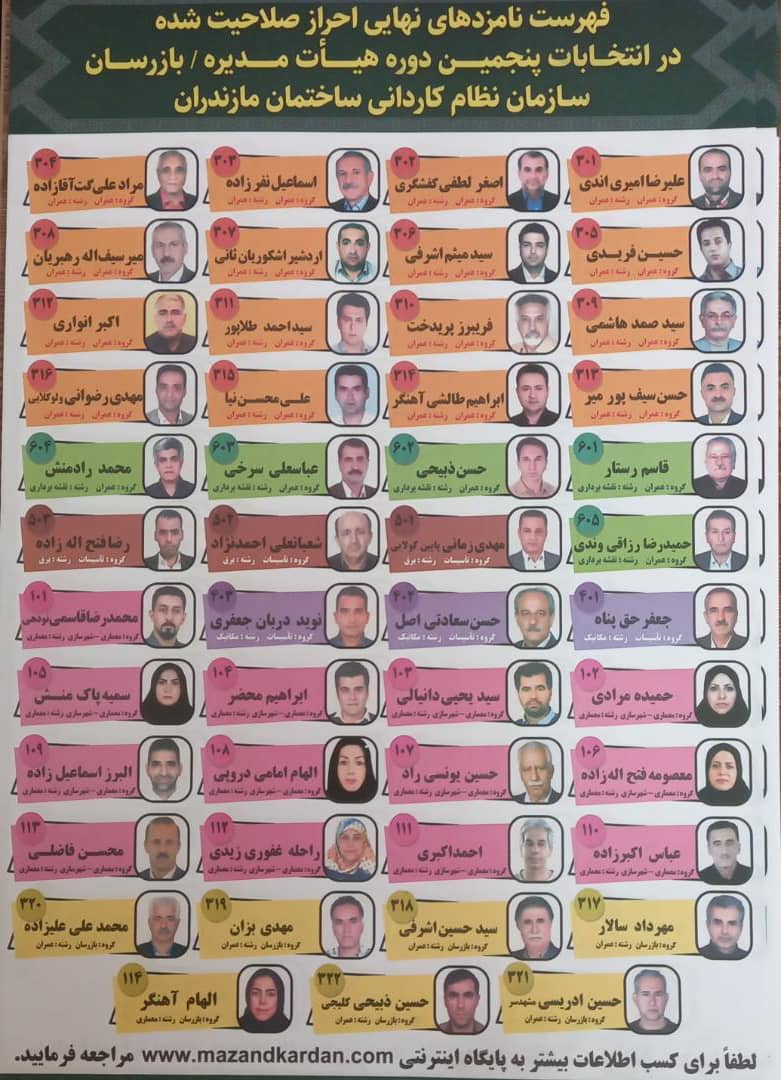 فهرست نامزدهای نهایی احراز صلاحیت شده
در انتخابات پنجمین دوره هیأت مدیره / بازرسان
سازمان نظام کاردانی ساختمان مازندران
۳۰۱
علیرضا امیری اندی
گروه: عمران رشته: عمران
۳۰۲
اصغر لطفی کفشگری
گروه: عمران رشته: عمران
۳۰۳
اسماعیل نفر زاده
گروه: عمران رشته: عمران
۳۰۴
مراد علی گت آقازاده
گروه: عمران رشته: عمران
۳۰۵
حسین فریدی
گروه: عمران رشته: عمران
۳۰۶
سید میثم اشرفی
گروه: عمران رشته: عمران
۳۰۷
اردشیر اشکوریان ثانی
گروه: عمران رشته: عمران
۳۰۸
میر سیف اله رهبریان
گروه: عمران رشته: عمران
۳۰۹
سید صمد هاشمی
گروه: عمران رشته: عمران
۳۱۰
فریبرز پریدخت
گروه: عمران رشته: عمران
۳۱۱
سید احمد طلاپور
گروه: عمران رشته: عمران
۳۱۲
اکبر انواری
گروه: عمران رشته: عمران
۳۱۳
حسن سیف پور میر
گروه: عمران رشته: عمران
۳۱۴
ابراهیم طالشی آهنگر
گروه: عمران رشته: عمران
۳۱۵
علی محسن نیا
گروه: عمران رشته: عمران
۳۱۶
مهدی رضوانی ولوکلایی
گروه: عمران رشته: عمران
۶۰۱
قاسم رستار
گروه: عمران رشته: نقشه برداری
۶۰۲
حسن ذبیحی
گروه: عمران رشته: نقشه برداری
۶۰۳
عباسعلی سرخی
گروه: عمران رشته: نقشه برداری
۶۰۴
محمد رادمنش
گروه: عمران رشته: نقشه برداری
۶۰۵
حمیدرضا رزاقی وندی
گروه: عمران رشته: نقشه برداری
۵۰۱
مهدی زمانی پایین گولایی
گروه: تأسیسات رشته: برق
۵۰۲
شعبانعلی احمدنژاد
گروه: تأسیسات رشته: برق
۵۰۳
رضا فتح اله زاده
گروه: تأسیسات رشته: برق
۴۰۱
جعفر حق پناه
گروه: تأسیسات رشته: مکانیک
۴۰۲
حسن سعادتی اصل
گروه: تأسیسات رشته: مکانیک
۴۰۳
نوید دربان جعفری
گروه: تأسیسات رشته: مکانیک
۱۰۱
محمدرضا قاسمی نودهی
گروه: معماری - شهرسازی رشته: معماری
۱۰۲
حمیده مرادی
گروه: معماری - شهرسازی رشته: معماری
۱۰۳
سید یحیی دانیالی
گروه: معماری - شهرسازی رشته: معماری
۱۰۴
ابراهیم محضر
گروه: معماری - شهرسازی رشته: معماری
۱۰۵
سمیه پاک منش
گروه: معماری - شهرسازی رشته: معماری
۱۰۶
معصومه فتح اله زاده
گروه: معماری - شهرسازی رشته: معماری
۱۰۷
حسین یونسی راد
گروه: معماری - شهرسازی رشته: معماری
۱۰۸
الهام امامی درویی
گروه: معماری - شهرسازی رشته: معماری
۱۰۹
البرز اسماعیل زاده
گروه: معماری - شهرسازی رشته: معماری
۱۱۰
عباس اکبرزاده
گروه: معماری - شهرسازی رشته: معماری
۱۱۱
احمد اکبری
گروه: معماری - شهرسازی رشته: معماری
۱۱۲
راحله غفوری زیدی
گروه: معماری - شهرسازی رشته: معماری
۱۱۳
محسن فاضلی
گروه: معماری - شهرسازی رشته: معماری
۳۱۷
مهرداد سالار
گروه: بازرسان رشته: عمران
۳۱۸
سید حسین اشرفی
گروه: بازرسان رشته: عمران
۳۱۹
مهدی بزان
گروه: بازرسان رشته: عمران
۳۲۰
محمد علی علیزاده
گروه: بازرسان رشته: عمران
۳۲۱
حسین ادریسی مشهدسر
گروه: بازرسان رشته: عمران
۳۲۲
حسین ذبیحی کلیجی
گروه: بازرسان رشته: عمران
۱۱۴
الهام آهنگر
گروه: بازرسان رشته: معماری
لطفاً برای کسب اطلاعات بیشتر به پایگاه اینترنتی www.mazandkardan.com مراجعه فرمایید.